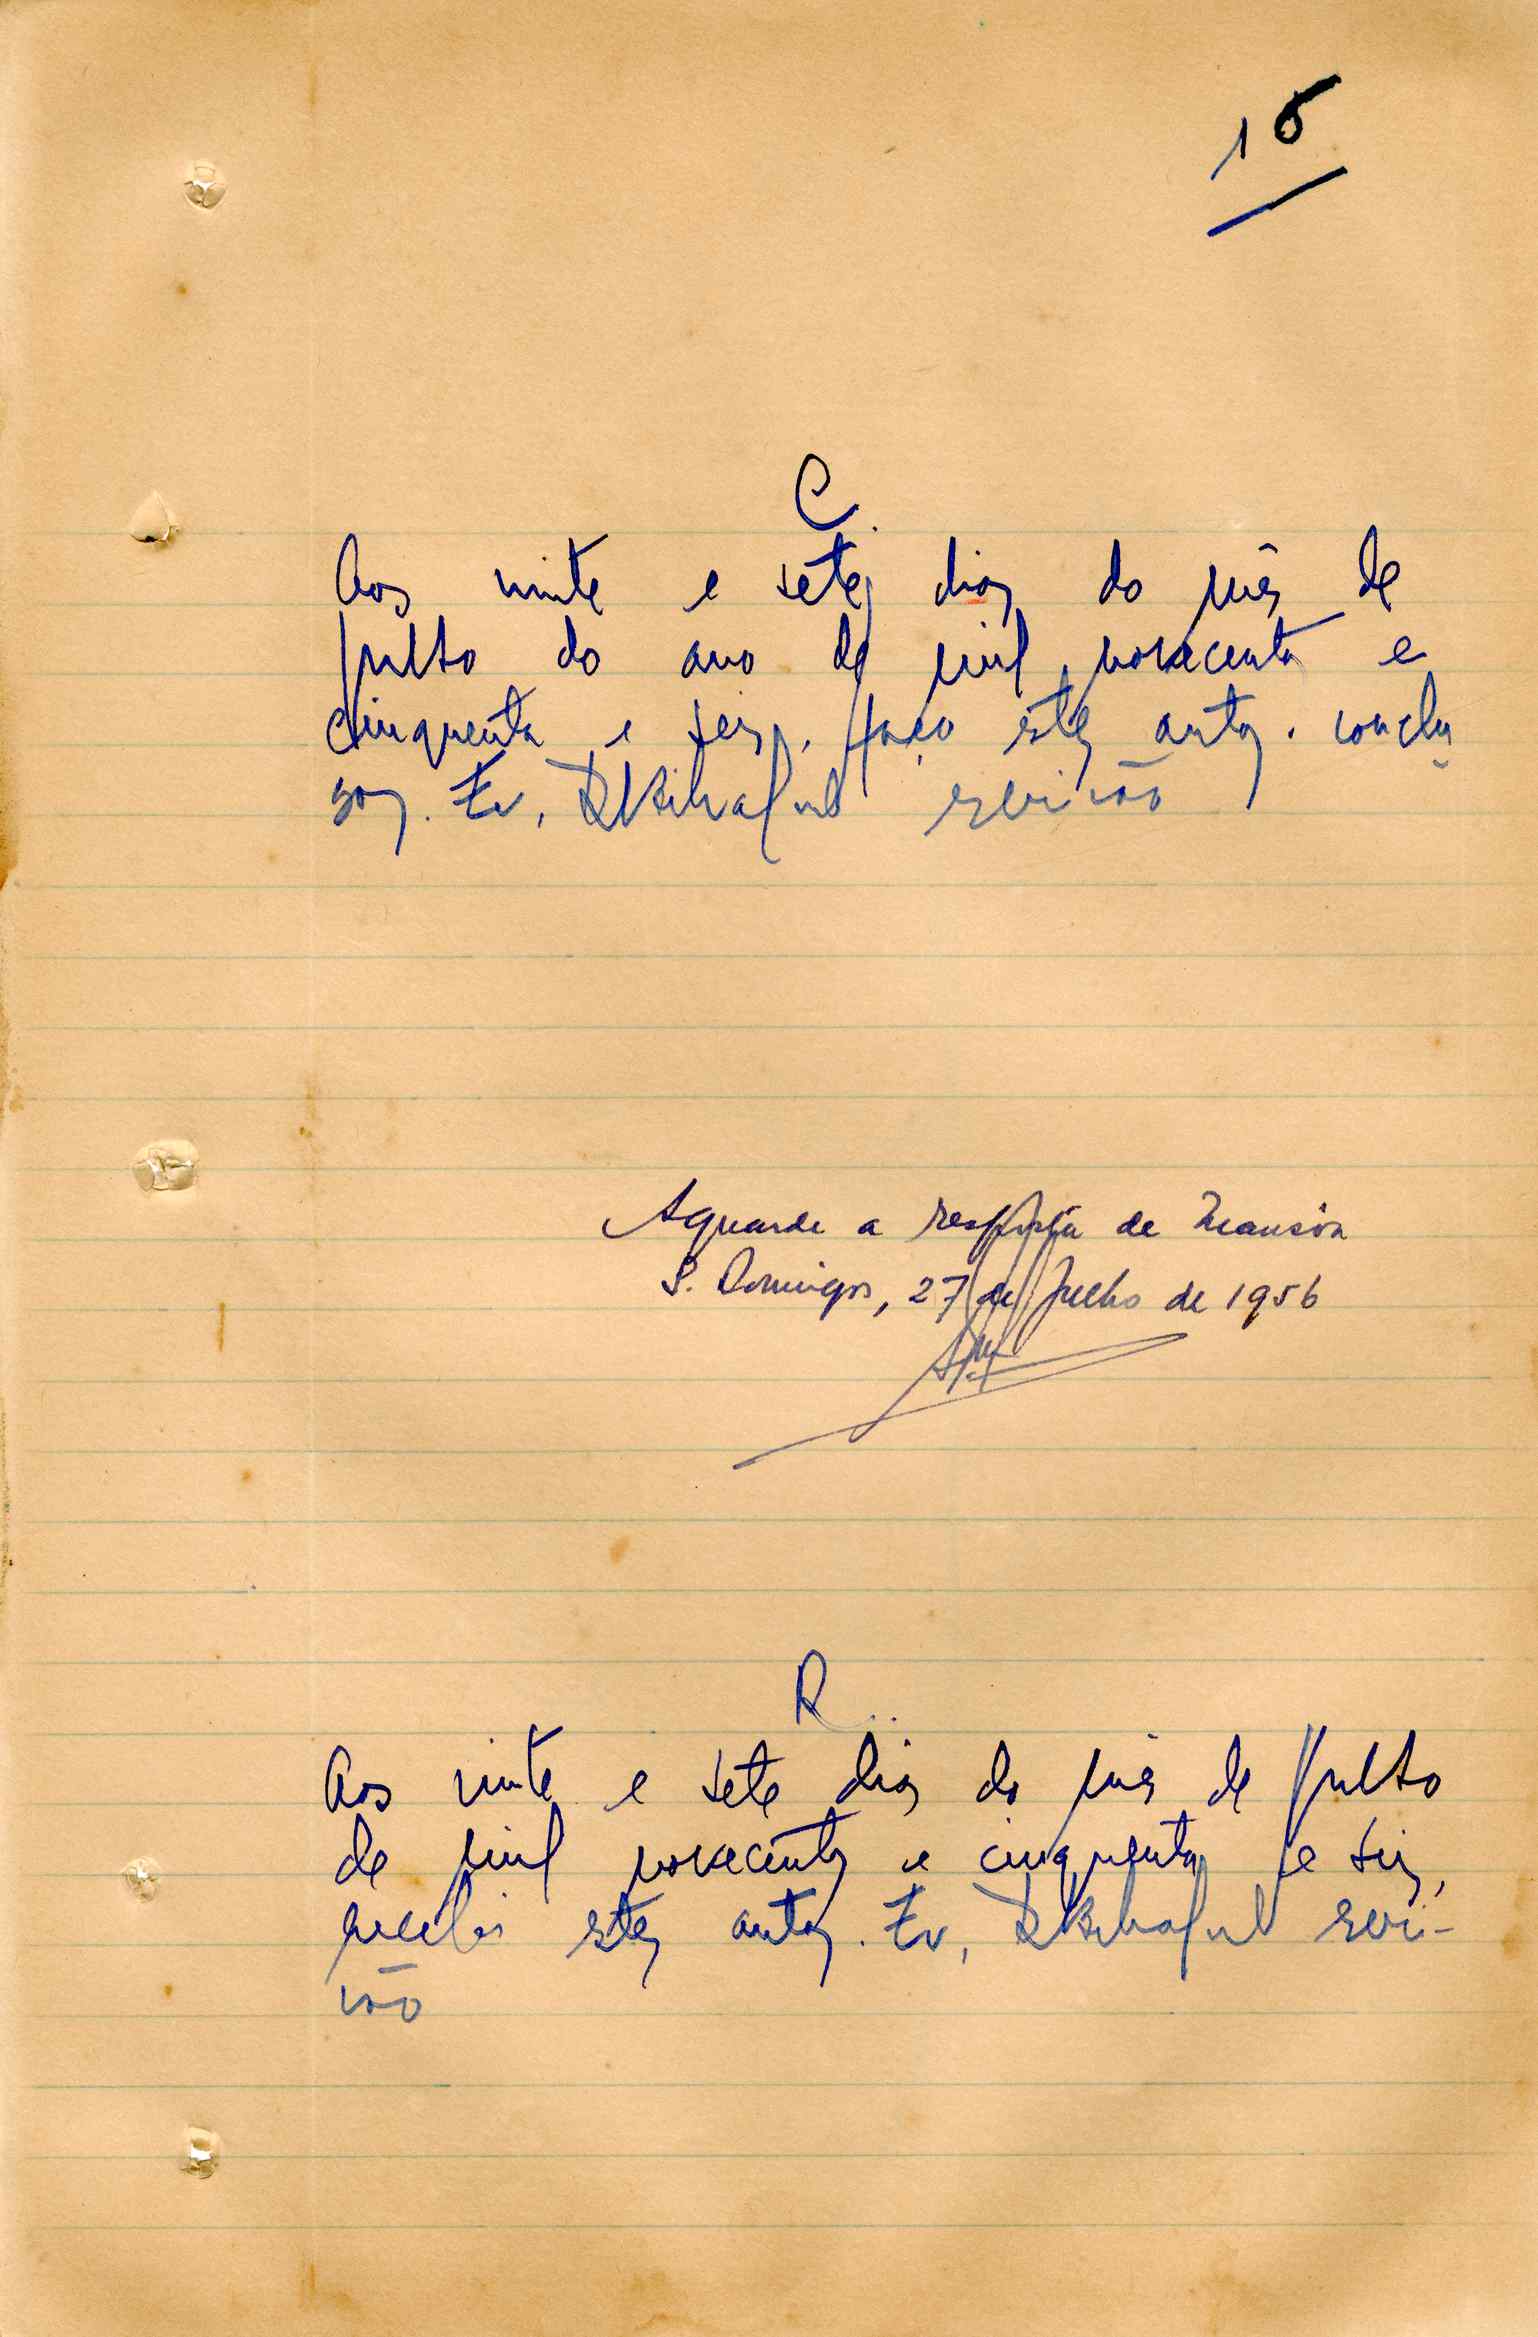 16
C.
Aos vinte e sete dias do mês de
julho do ano de mil novecentos e
cinquenta e seis, faço estes autos conclu
sos. Eu, escrivão
Aguarde a resposta de
S. Domingos, 27 de Julho de 1956
R.
Aos vinte e sete dias do mês de julho
de mil novecentos e cinquenta e seis,
recebi estes autos. Eu, escri-
vão